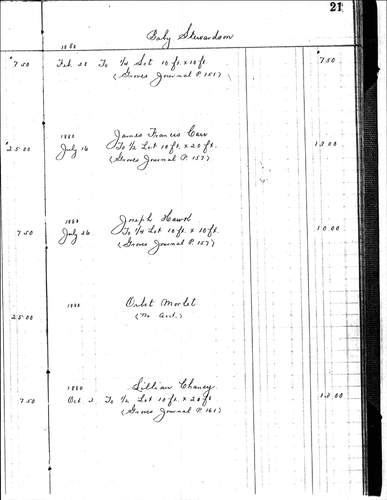 21
Baby Stewardson
1880
$7.50 Feb. 28 To 1/4 Lot 10 ft. x 10 ft. 7.50
(Graves Journal P. 151)
James Francis Carr
1880
$25.00 July 16 To 1/2 Lot 10 ft. x 20 ft. 13.00
(Graves Journal P. 157)
Joseph Hawk
1880
7.50 July 26 To 1/4 Lot 10 ft. x 10 ft. 10.00
(Graves Journal P. 157)
1880 Orbet Morlet
25.00 (No Acct.)
Lillian Chaney
1880
7.50 Oct. 2 To 1/2 Lot 10 ft. x 20 ft 13.00
(Graves Journal P. 161)